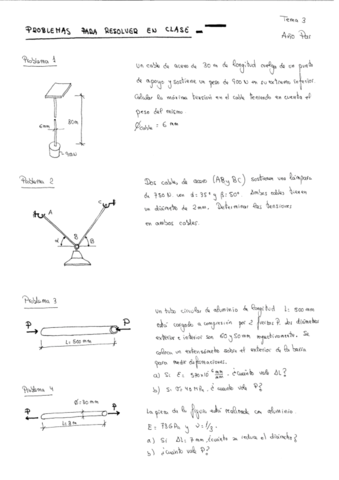 Tema 3
PROBLEMAS PARA RESOLVER EN CLASE
Problema 1
un cable de acero de 30 m de longitud cuelga de un punto
de apoyo y sostiene un peso de 500 N en su extremo inferior.
Calcular la máxima tensión en el cable teniendo en cuenta el
peso del mismo.
Ø cable = 6 mm
6 mm
30 m
500 N
Problema 2
Dos cables de acero (AB y BC) sostienen una lámpara
de 750 N. α = 35° y β = 50°. Ambos cables tienen
un diámetro de 2 mm. Determinar las tensiones
en ambos cables.
A
C
B
α
β
Problema 3
un tubo circular de aluminio de longitud L = 500 mm
está cargado a compresión por 2 fuerzas P. Los diámetros
exterior e interior son 60 y 50 mm respectivamente. Se
coloca un extensómetro sobre el exterior de la barra
para medir deformaciones.
P
P
L = 500 mm
a) Si ¿cuánto vale ΔL?
b) Si ¿cuánto vale P?
Problema 4
La pieza de la figura está realizada con aluminio.
P
Ø = 30 mm
P
L = 3 m
a) Si ΔL = 7 mm ¿cuánto se reduce el diámetro?
b) ¿cuánto vale P?